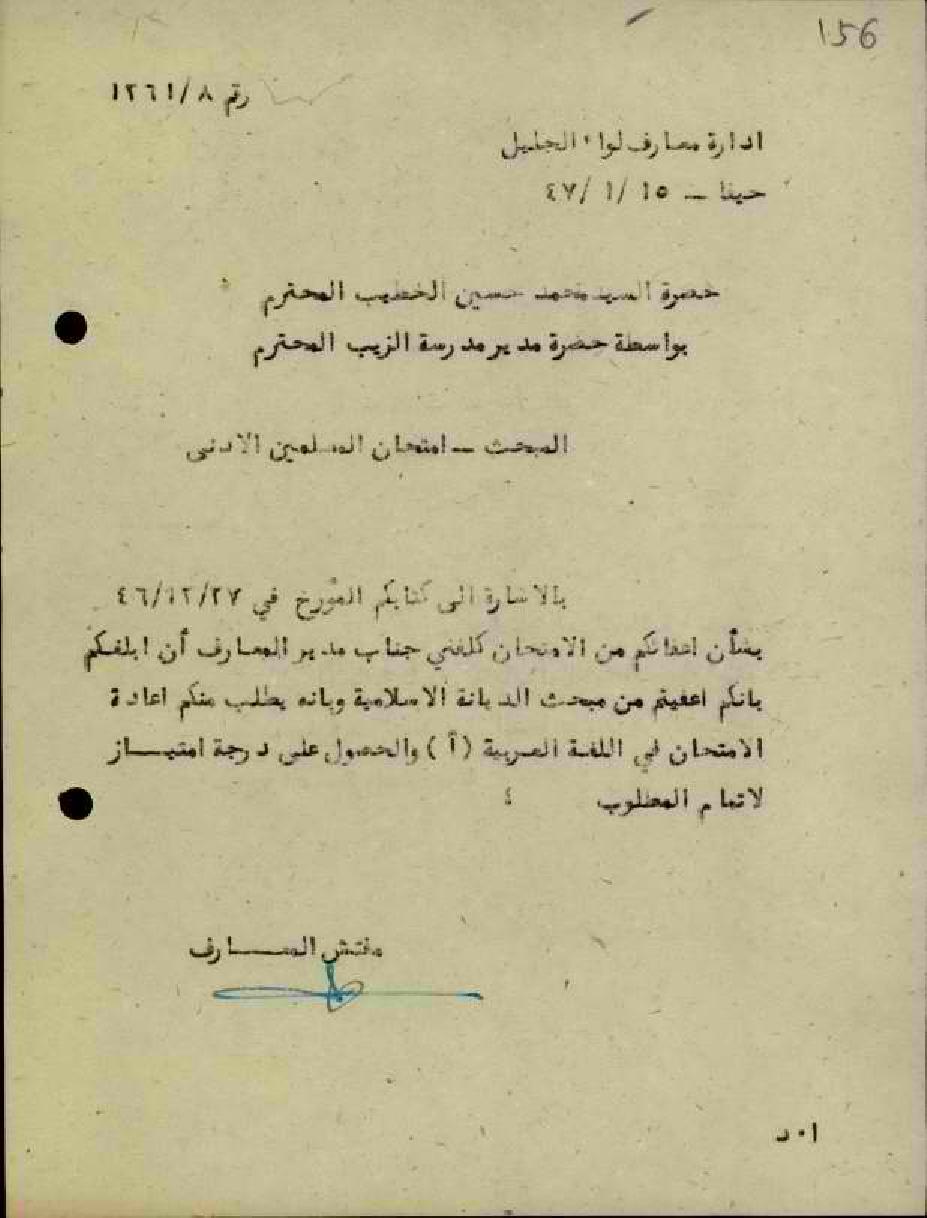 156
رقم ٨/١٢٦١
ادارة معارف لواء الجليل
حيفا ــ ١٥ /١ /٤٧
حضرة السيد محمد حسين الخطيب المحترم
بواسطة حضرة مدير مدرسة الزيب المحترم
المبحث ــ امتحان المعلمين الادنى
بالاشارة الى كتابكم المؤرخ في ٤٦/١٢/٢٧
بشأن اعفائكم من الامتحان كلفني جناب مدير المعارف أن ابلغكم
بانكم اعفيتم من مبحث الديانة الاسلامية وبانه يطلب منكم اعادة
الامتحان في اللغة العربية (أ) والحصول على درجة امتيــــاز
لاتمام المطلوب
مفتش المعـــــارف
ا٠د